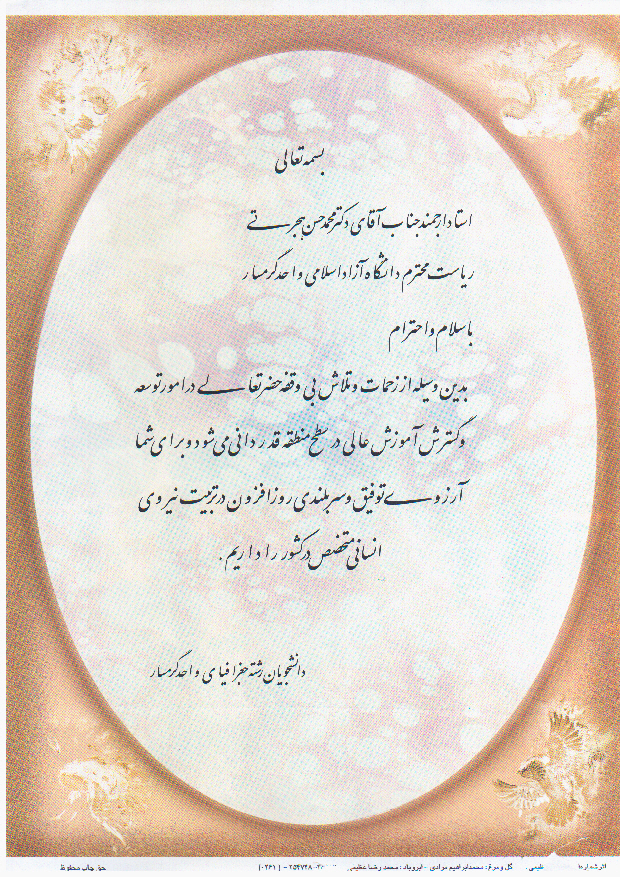 بسمه تعالی
استاد ارجمند جناب آقای دکتر محمد حسن هجرتی
ریاست محترم دانشگاه آزاد اسلامی واحد گرمسار
با سلام و احترام
بدین وسیله از زحمات و تلاش بی وقفه حضرتعالی در امور توسعه
و گسترش آموزش عالی در سطح منطقه قدردانی می شود و برای شما
آرزوی توفیق و سربلندی روزافزون در تربیت نیروی
انسانی متخصص در کشور را داریم.
دانشجویان رشته جغرافیای واحد گرمسار
گل و مرغ: محمدابراهیم مرادی - ابر و باد: محمد رضا عظیمی حق چاپ محفوظ